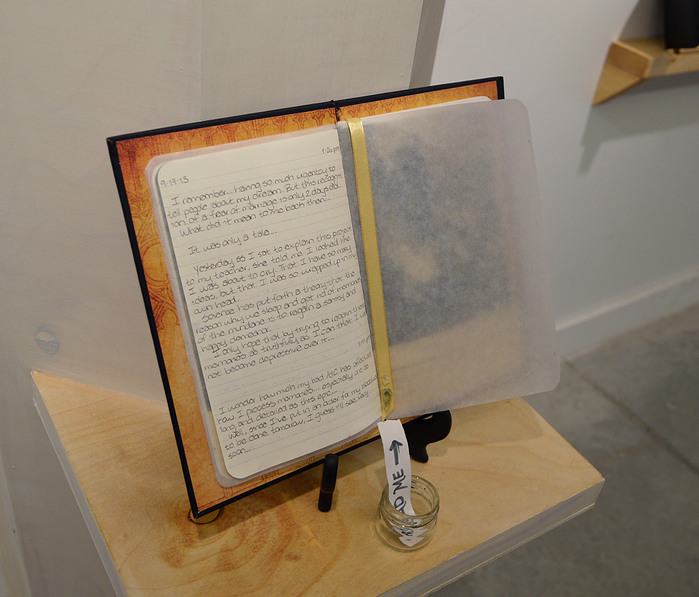 9-17-15
1:26 pm
I remember... having so much urgency to
tell people about my dream. But this recognit
ion of a fear of marriage is only 2 days old.
What did it mean to me back then...
It was only a tale...
Yesterday as I sat to explain this project
to my teacher, she told me I looked like
I was about to cry. That I have so many
ideas, but that I was so wrapped up in my
own head.
Science has put forth a theory that the
reason why we sleep and get rid of memories
of the mundane is to regain a satisfy and
happy demeanor.
I only hope that by trying to regain these
memories as truthfully as I can that I will
not become depressive over it...
I wonder how much my bad has around
how I process memories... especially one so
long and detailed as this epic...
Well, since I've put in an order for my
to be done tomorrow, I guess I'll see very
soon...
READ ME →